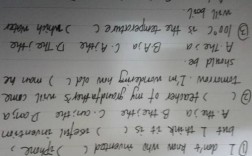 ① I don't know who invented ( ) iphone,
but I think it is ( ) useful invention
A. the, a B. the, the C. an, the D. an, a
② ( ) teacher of my grandfather's will come
tomorrow. I'm wondering how old ( ) man he
should be
A. The, a B. A, a C. A, the D. The, the
③ 100℃ is the temperature ( ) which water
will boil.